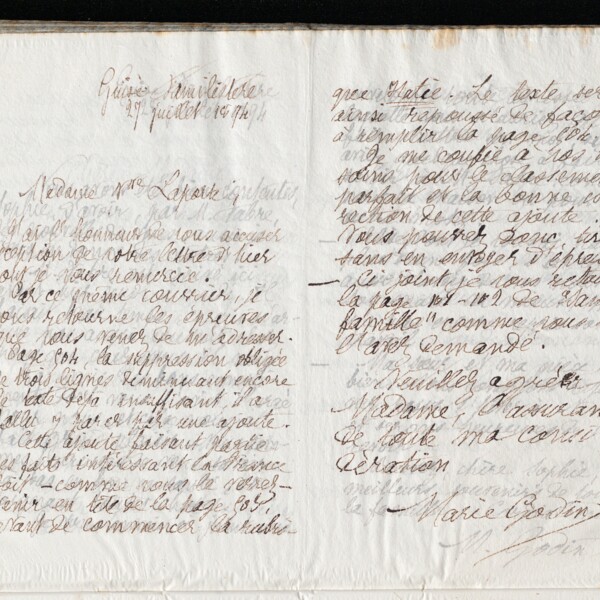 Guise Familistère
27 juillet 1894
Madame Vve Laporte,
J'ai l'honneur de vous accuser
réception de votre lettre d'hier
dont je vous remercie.
Par ce même courrier, je
vous retourne les épreuves
que vous venez de m'adresser.
Page 504 la suppression obligée
de trois lignes diminuant encore
le texte déjà insuffisant, il a
fallu y parer par une ajoute.
Cette ajoute
les faits intéressant la France
doit - comme vous le verrez -
venir en tête de la page 505
avant de commencer la rubri-
que Italie. Le texte ser
ainsi repoussé de façon
à remplir la page 504
Je me confie à vos
soins pour le classement
parfait et la bonne cor
rection de cette ajoute.
Vous pouvez donc
sans en envoyer d'épreu
- Ci joint, je vous retou
la page de "la
famille" comme vous
l'avez demandé.
Veuillez agréer
Madame, l'assuran
de toute ma consi
dération
Marie Godin